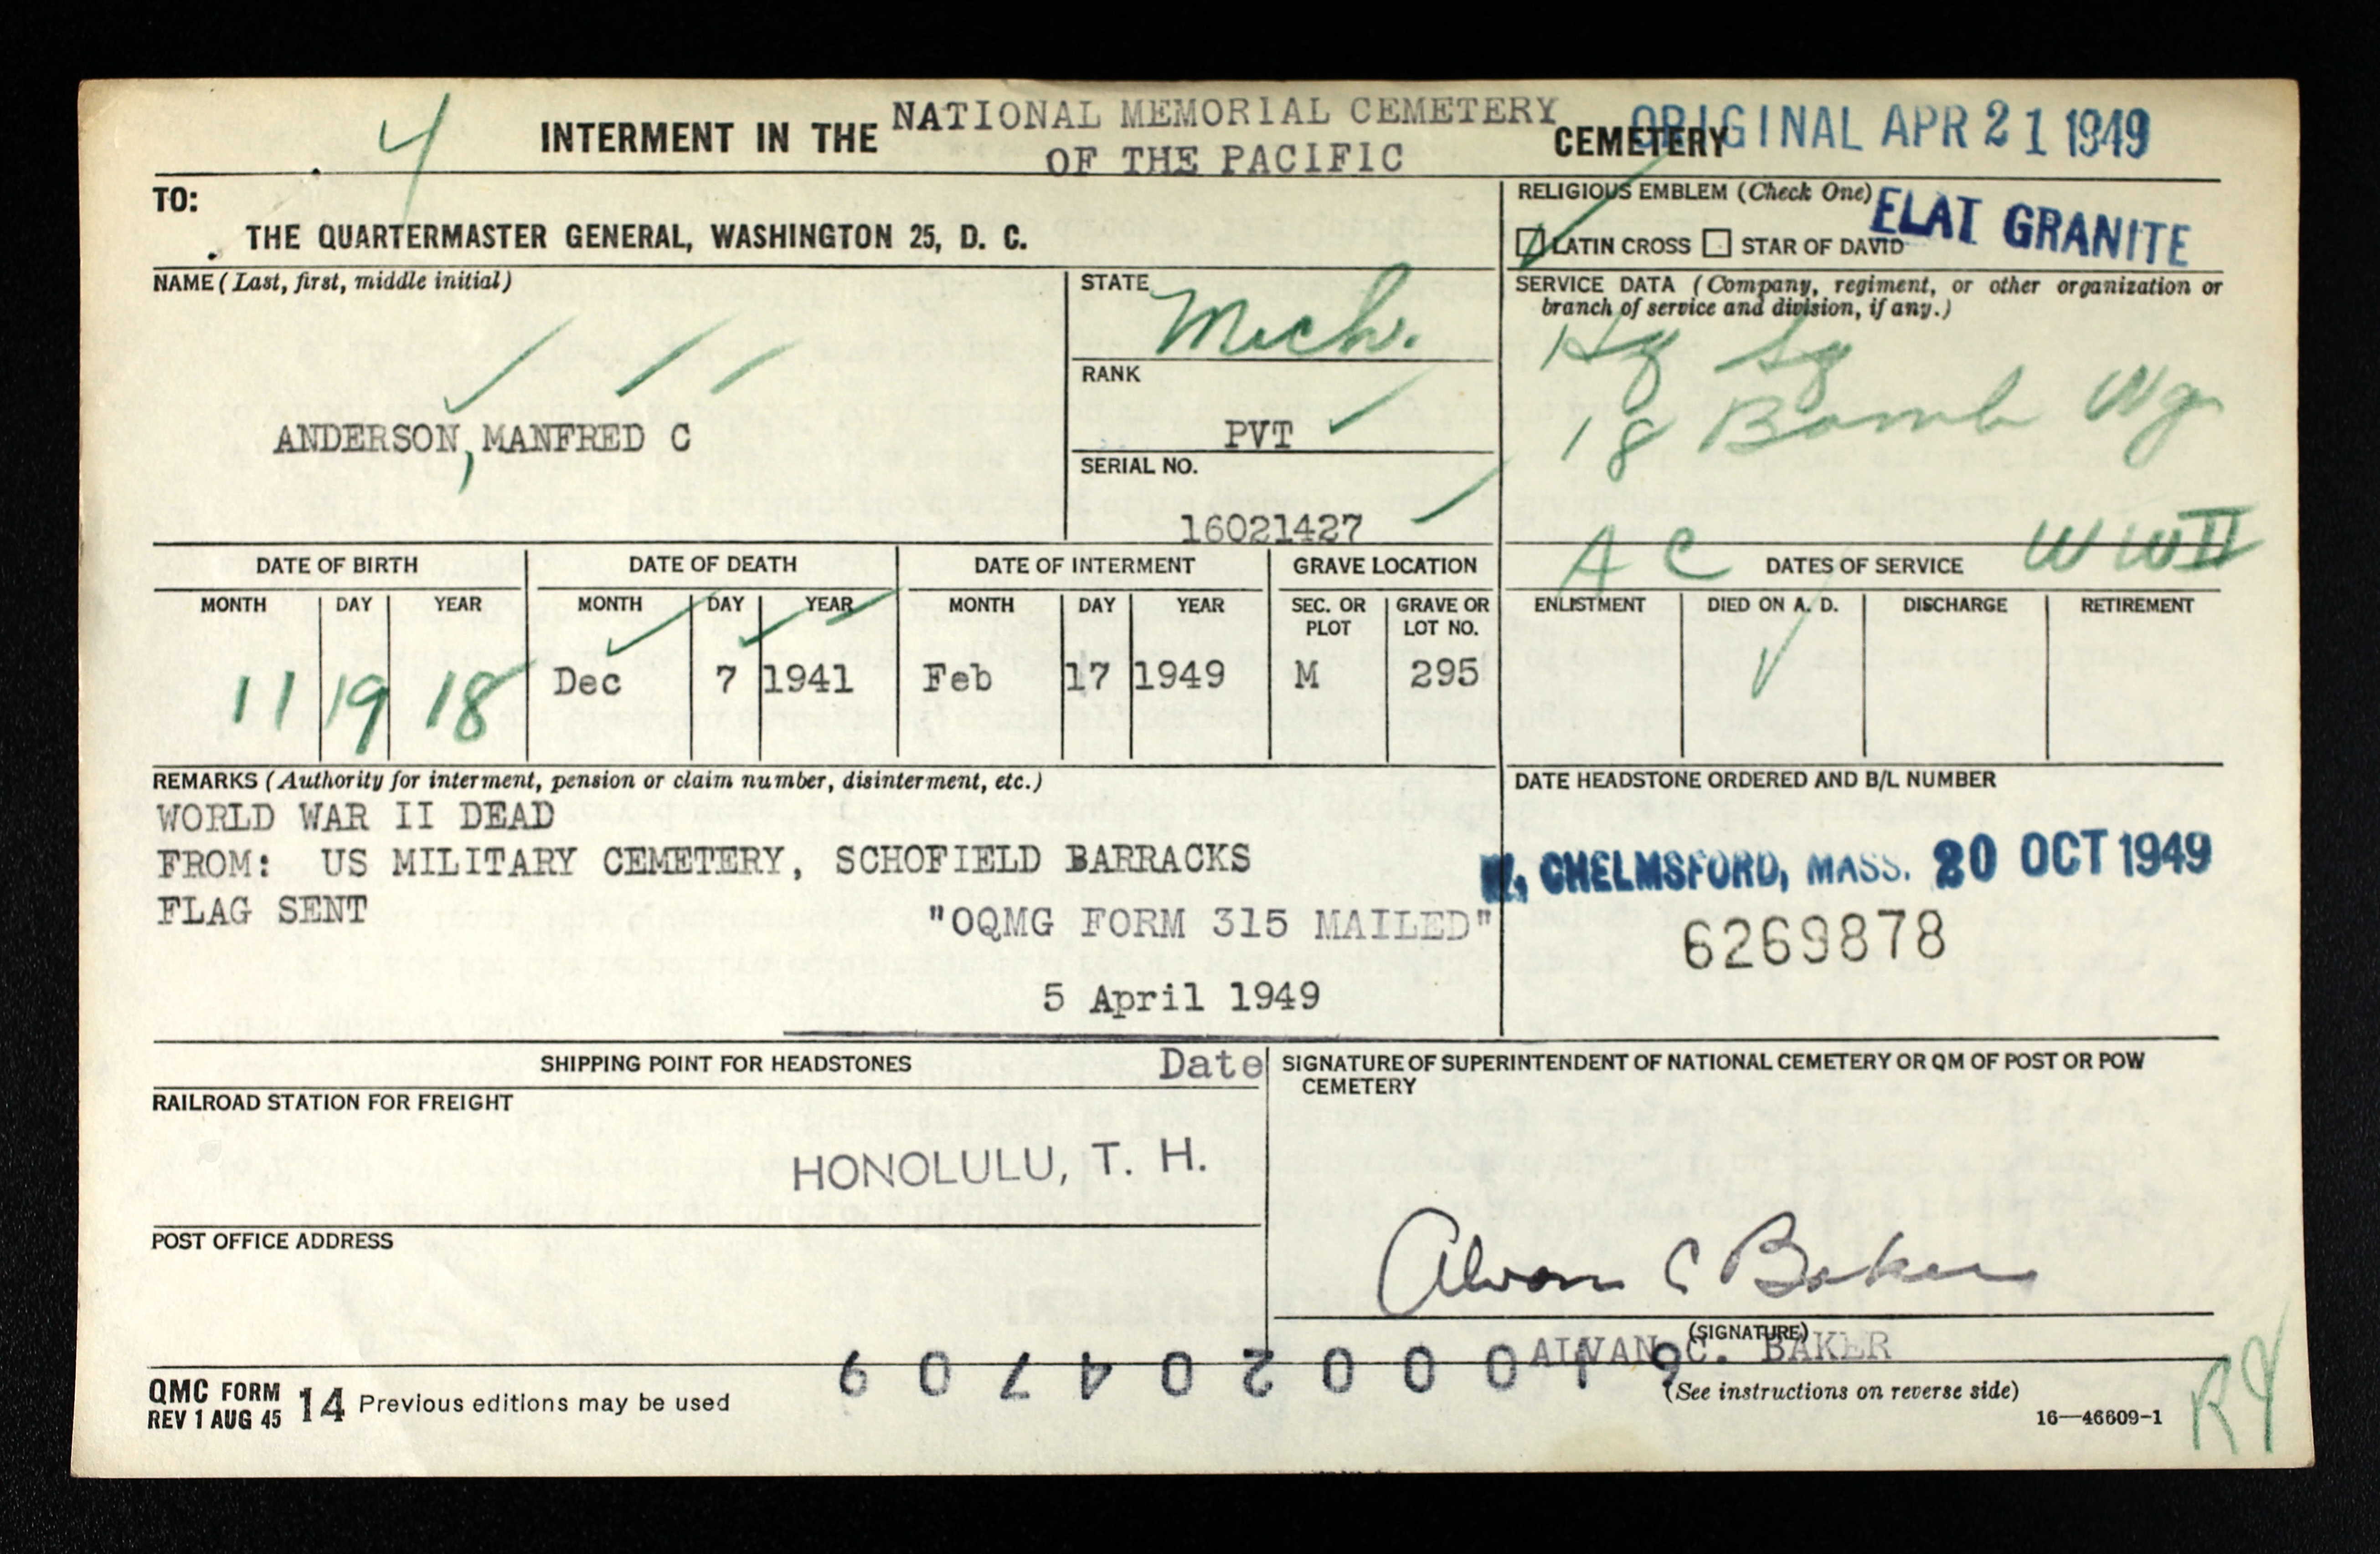 4
INTERMENT IN THE NATIONAL MEMORIAL CEMETERY OF THE PACIFIC CEMETERY
ORIGINAL APR 21 1949
TO:
THE QUARTERMASTER GENERAL, WASHINGTON 25, D. C.
RELIGIOUS EMBLEM (Check One)
LATIN CROSS STAR OF DAVID
FLAT GRANITE
NAME (Last, first, middle initial)
ANDERSON, MANFRED C
STATE
Mich.
RANK
PVT
SERIAL NO.
16021427
SERVICE DATA (Company, regiment, or other organization or
branch of service and division, if any.)
Hq Sq
18 Bomb Wg
A C WWII
DATE OF BIRTH
MONTH DAY YEAR
11 19 18
DATE OF DEATH
MONTH DAY YEAR
Dec 7 1941
DATE OF INTERMENT
MONTH DAY YEAR
Feb 17 1949
GRAVE LOCATION
SEC. OR PLOT GRAVE OR LOT NO.
M 295
DATES OF SERVICE
ENLISTMENT DIED ON A. D. DISCHARGE RETIREMENT
REMARKS (Authority for interment, pension or claim number, disinterment, etc.)
WORLD WAR II DEAD
FROM: US MILITARY CEMETERY, SCHOFIELD BARRACKS
FLAG SENT
"OQMG FORM 315 MAILED"
5 April 1949
Date
DATE HEADSTONE ORDERED AND B/L NUMBER
W. CHELMSFORD, MASS. 20 OCT 1949
6269878
SHIPPING POINT FOR HEADSTONES
RAILROAD STATION FOR FREIGHT
HONOLULU, T. H.
POST OFFICE ADDRESS
SIGNATURE OF SUPERINTENDENT OF NATIONAL CEMETERY OR QM OF POST OR POW
CEMETERY
Alvan C Baker
(SIGNATURE)
ALVAN C. BAKER
(See instructions on reverse side)
QMC FORM 14
REV 1 AUG 45
Previous editions may be used
16—46609-1